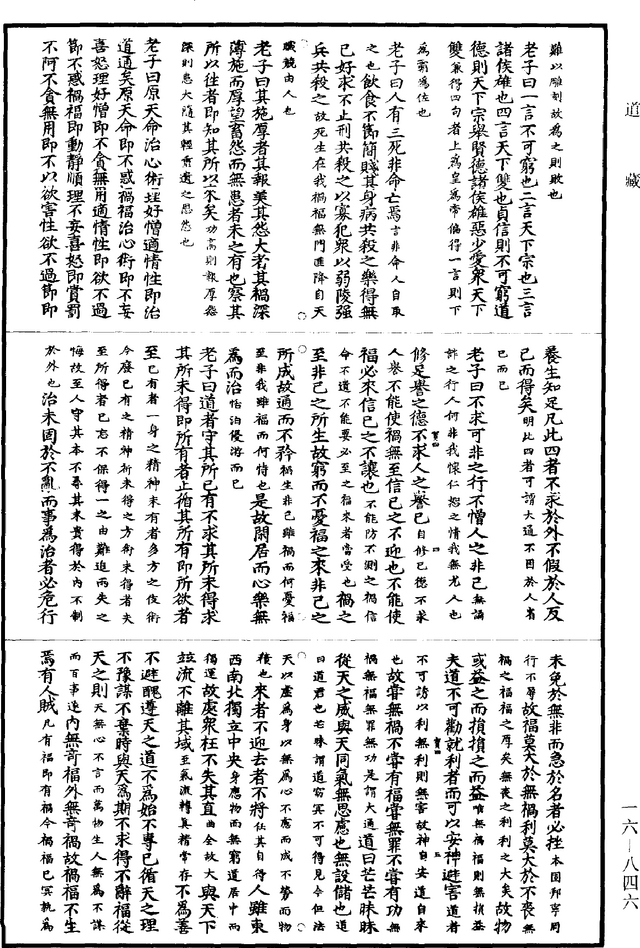 道藏
難以雕刻故為之則敗也
老子曰一言不可窮也二言天下宗也三言
諸侯雄也四言天下雙也貞信則不可窮道
德則天下宗舉賢德諸侯雄惡少愛衆天下
雙兼得四句者上為皇為帝偏得一言則下
為霸為佐也
老子曰人有三死非命亡焉言非命人自取
之也飲食不節簡賤其身病共殺之樂得無
已好求不止刑共殺之以寡犯衆以弱陵强
兵共殺之故死生在我禍福無門進降自天
職競由人也
老子曰其施厚者其報美其怨大者其禍深
薄施而厚望畜怨而無患者未之有也察其
所以往者即知其所以來矣功高則報厚怨
深則患大隨其輕重遺之愍然也
老子曰原天命治心術理好憎適情性即治
道通矣原天命即不惑禍福治心術即不妄
喜怒理好憎即不貪無用適情性即欲不過
節不惑禍福即動靜順理不妄喜怒即賞罰
不阿不貪無用即不以欲害性欲不過節即
養生知足凡此四者不求於外不假於人反
己而得矣明此四者可謂大通不因於人省
己而已
老子曰不求可非之行不憎人之非己無譎
詐之行人何非我懷仁恕之情我無尤人也
修足譽之德不求人之譽己自修己德不求
人譽不能使禍無至信己之不迎也不能使
福必來信己之不讓也不能防不測之禍信
命不道不能要必至之福來者當受也禍之
至非己之所生故窮而不憂福之來非己之
所成故通而不矜禍生非己雖禍而何憂福
至非我雖福而何恃也是故閑居而心樂無
為而治恬怕優游而已
老子曰道者守其所已有不求其所未得求
其所未得即所有者亡循其所有即所欲者
至已有者一身之精神未有者多方之伎術
今廢已有之精神祈未得之方術未得者失
至所得者已忘不保得一之由難追兩失之
悔故至人守其本不尋其末貴得於內不制
於外也治未固於不亂而事為治者必危行
未免於無非而急於名者必挫本固邦寧周
行不辱故福莫大於無禍利莫大於不喪無
禍之福福之厚矣無喪之利利之大矣故物
或益之而損損之而益唯無禍福則無損益
夫道不可勸就利者而可以安神避害道者
不可誘以利無利則無害故神自安道自來
也故嘗無禍不嘗有福嘗無罪不嘗有功無
禍無福無罪無功是謂大通道曰芒芒昧昧
從天之威與天同氣無思慮也無設儲也道
曰道君也芒昧謂道窈冥不可得見令但法
天以虛為身以無為心不慮而成不勞而物
積也來者不迎去者不將任其自得人雖東
西南北獨立中央身應物而無窮道居中而
獨運故處衆枉不失其直曲全故大與天下
並流不離其域至氣潋轉真精常存不為善
不避醜遵天之道不為始不專己循天之理
不豫謀不棄時與天為期不求得不辭福從
天之則天無心不言而萬物生人無為不謀
而百事遂內無奇福外無奇禍故禍福不生
焉有人賊凡有福即有禍今禍福已冥孰為
一六—八四六